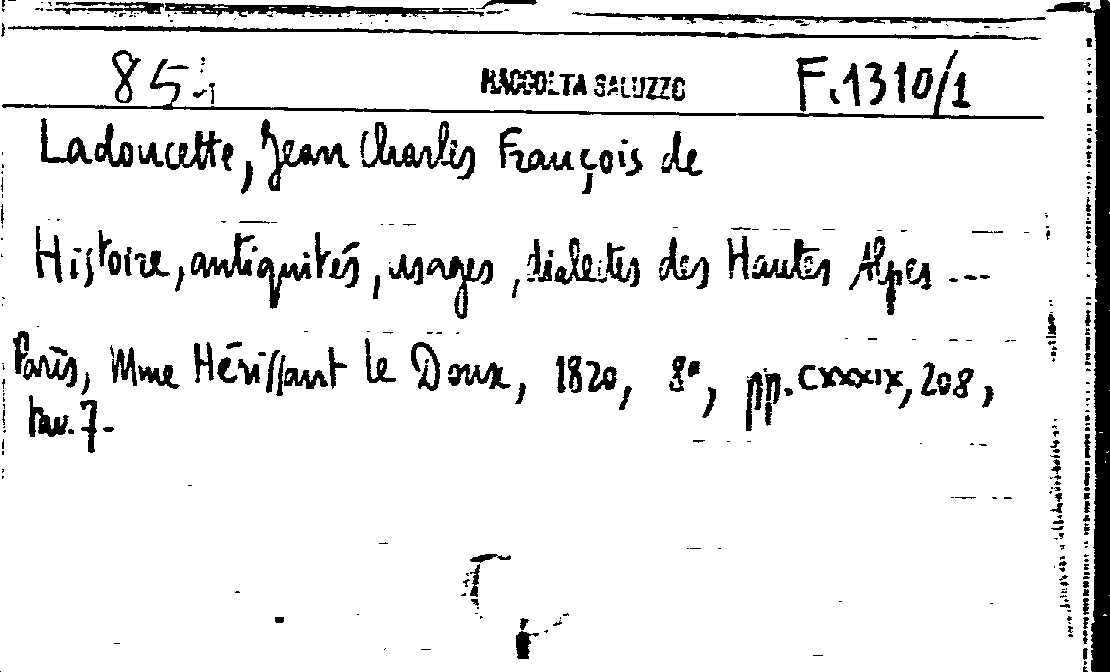 85 RACCOLTA SALUZZO F.1310/1
Ladoucette, Jean Charles François de
Histoire, antiquités, usages, dialectes des Hautes Alpes ---
Paris, Mme Hérissant le Doux, 1820, 8°, pp. CXXXIX, 208,
tav. 7-